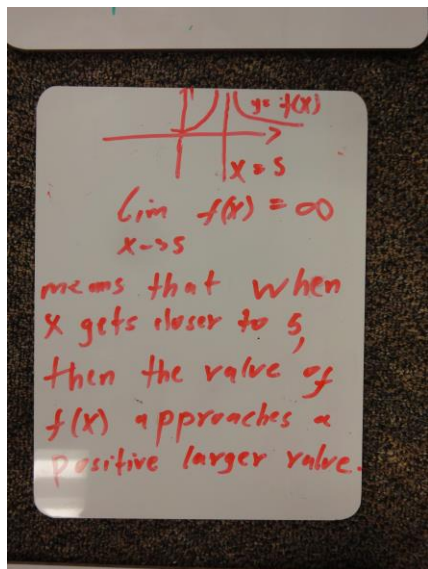 y = f(x)
x = 5
lim f(x) = ∞
x->5
means that when
x gets closer to 5,
then the value of
f(x) approaches a
positive larger value.